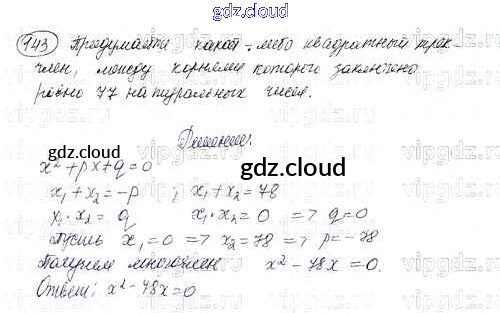 gdz.cloud
143 Придумайте какой-либо квадратный трех-
член, между корнями которого заключено
ровно 77 натуральных чисел.
Решение:
gdz.cloud
gdz.cloud
x² + px + q = 0
x₁ + x₂ = -p ; x₁ + x₂ = 78
x₁ · x₂ = q x₁ · x₂ = 0 => q = 0
Пусть x₁ = 0 => x₂ = 78 => p = -78
Получаем многочлен x² - 78x = 0.
Ответ: x² - 78x = 0
gdz.cloud
gdz.cloud